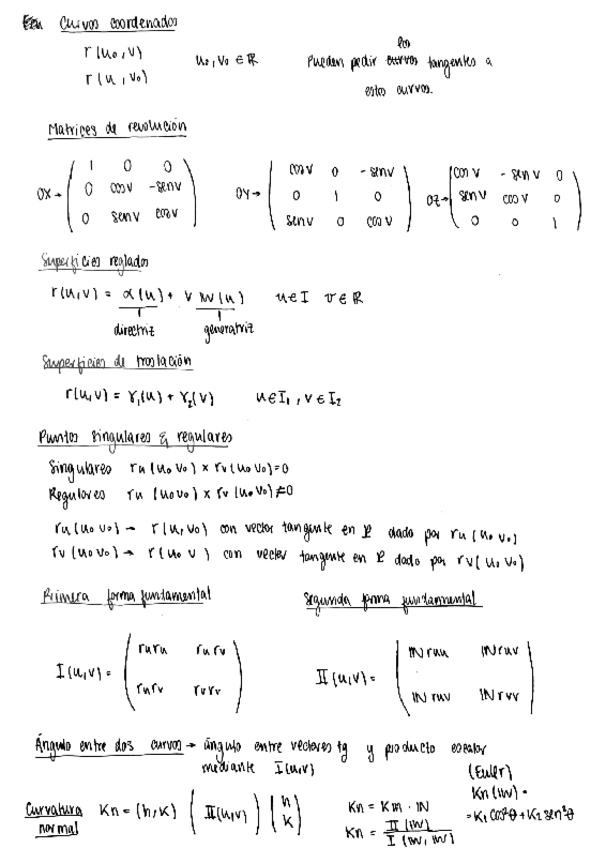 Curvas coordenadas
r(u₀,v)
r(u,v₀)
u₀, v₀ ∈ ℝ
Pueden pedir los tangentes a
estas curvas.
Matrices de revolución
OX → ( 1 0 0
0 cos v -sen v
0 sen v cos v )
OY → ( cos v 0 -sen v
0 1 0
sen v 0 cos v )
OZ → ( cos v -sen v 0
sen v cos v 0
0 0 1 )
Superficies regladas
r(u,v) = α(u) + v w(u) u∈I v∈ℝ
directriz generatriz
Superficies de traslación
r(u,v) = γ₁(u) + γ₂(v) u∈I₁, v∈I₂
Puntos singulares & regulares
Singulares ru(u₀ v₀) × rv(u₀ v₀)=0
Regulares ru(u₀v₀) × rv(u₀ v₀)≠0
ru(u₀ v₀) → r(u,v₀) con vector tangente en P dado por ru(u₀ v₀)
rv(u₀ v₀) → r(u₀ v) con vector tangente en P dado por rv(u₀ v₀)
Primera forma fundamental
Segunda forma fundamental
I(u,v) = ( ruru rurv
rurv rvrv )
II(u,v) = ( ℕruu ℕruv
ℕruv ℕrvv )
Ángulo entre dos curvas → ángulo entre vectores tg y producto escalar
mediante I(u,v)
Curvatura
normal
Kn = (h,k) ( II(u,v) ) ( h
k )
Kn = Km · ℕ
Kn = II(w) / I(w,w)
(Euler)
Kn(w) =
= K₁ cos²θ + K₂ sen²θ